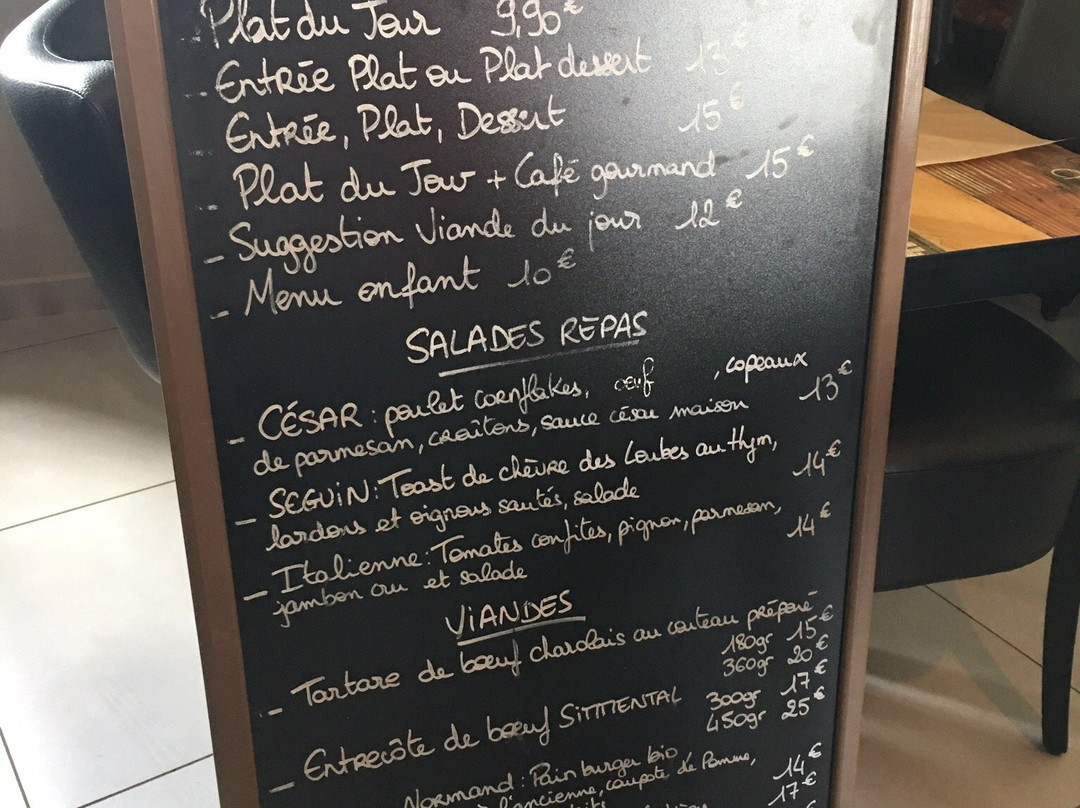 - Plat du Jour 9,90€
- Entrée Plat ou Plat dessert 13€
- Entrée, Plat, Dessert 15€
- Plat du Jour + Café gourmand 15€
- Suggestion Viande du jour 12€
- Menu enfant 10€
SALADES REPAS
- CÉSAR : poulet cornflakes, oeuf , copeaux
de parmesan, croûtons, sauce césar maison 13€
- SEGUIN : Toast de chèvre des Loubes au thym,
lardons et oignons sautés, salade 14€
- Italienne : Tomates confites, pignon, parmesan,
jambon cru et salade 14€
VIANDES
- Tartare de boeuf charolais au couteau préparé
180gr 15€
360gr 20€
- Entrecôte de boeuf SIMMENTAL 300gr 17€
450gr 25€
Normand : Pain burger bio
l'ancienne, compote de Pomme, 14€
17€